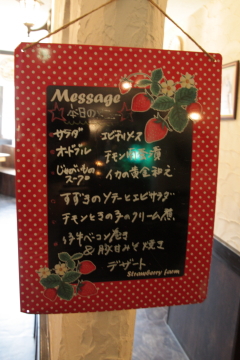 Message
今日の
サラダ エビチリソース
オードブル チキン
じゃがいもの
スープ イカの黄金和え
すずきのソテーとエビサラダ
チキンときの子のクリーム煮
ベーコン巻き
& 豚甘みそ焼き
デザート
Strawberry farm